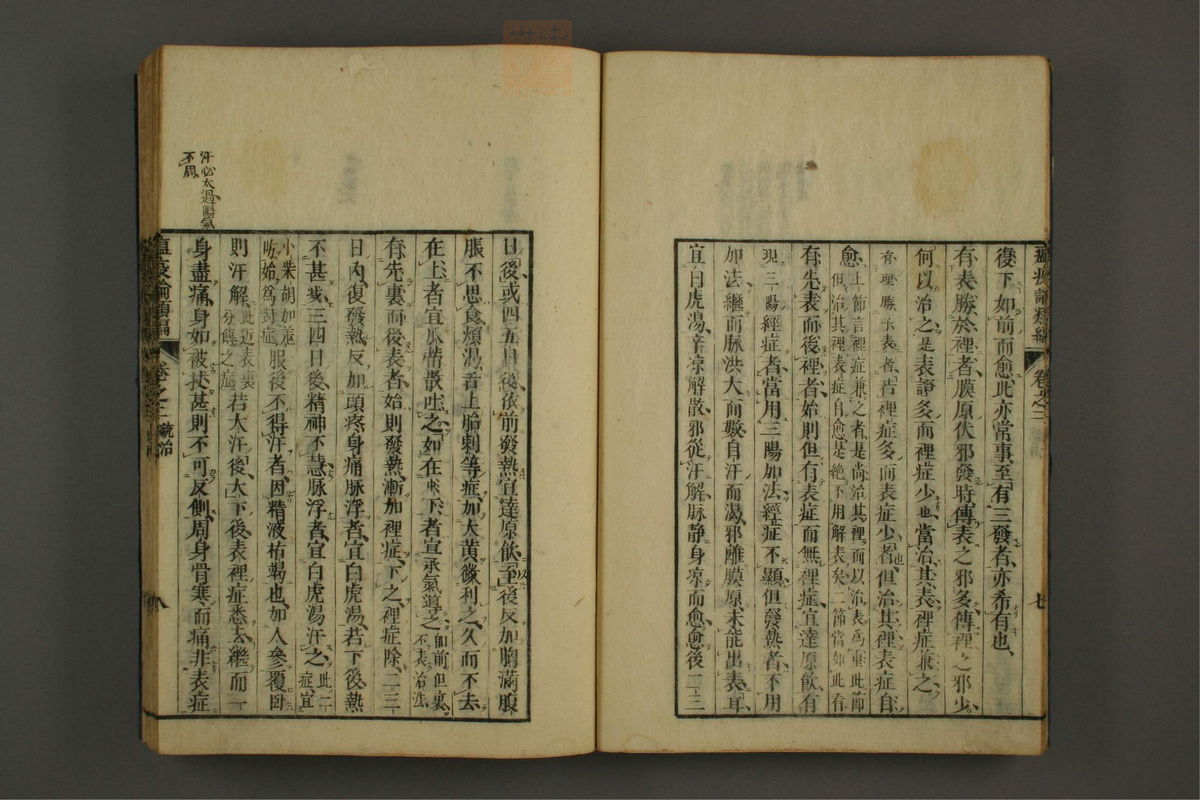 瘟疫論類編 卷之二 七
復下如前而愈此亦常事至有三發者亦希有也
有表勝於裡者膜原伏邪發時傳表之邪多傳裡之邪少
何以治之是表證多而裡症少也當治其表裡症兼之
有裡勝于表者若裡症多而表症少者但治其裡表症自
愈
上節言裡症兼之者是尚治其裡而以治表為重此節
但治其裡表症自愈是絶不用解表矣二節當如此看
有先表而後裡者始則但有表症而無裡症宜達原飲有
現三陽經症者當用三陽加法經症不顯但發熱者不用
加法繼而脉洪大而數自汗而渴邪離膜原未能出表耳
宜白虎湯辛凉解散邪從汗解脉靜身凉而愈愈後二三
日後或四五日後依前發熱宜達原飲至後反加胸滿腹
脹不思食煩渴舌上胎刺等症加大黃微利之久而不去
在上者宜瓜蒂散吐之如在下者宜承氣導之
即前但裏
不表治法
有先裏而後表者始則發熱漸加裡症下之裡症除二三
日內復發熱反加頭疼身痛脉浮者宜白虎湯若下後熱
不甚或三四日後精神不慧脉浮者宜白虎湯汗之
此二
症宜
小柴胡加羗
始為對症
服後不得汗者因精液枯竭也加人參覆卧
則汗解
此近表裏
分傳之症
若大汗後大下後表裡症悉去繼而一
身盡痛身如被杖甚則不可反側周身骨寒而痛非表症
卷之二 統治 八
汗必太過陽氣
不周